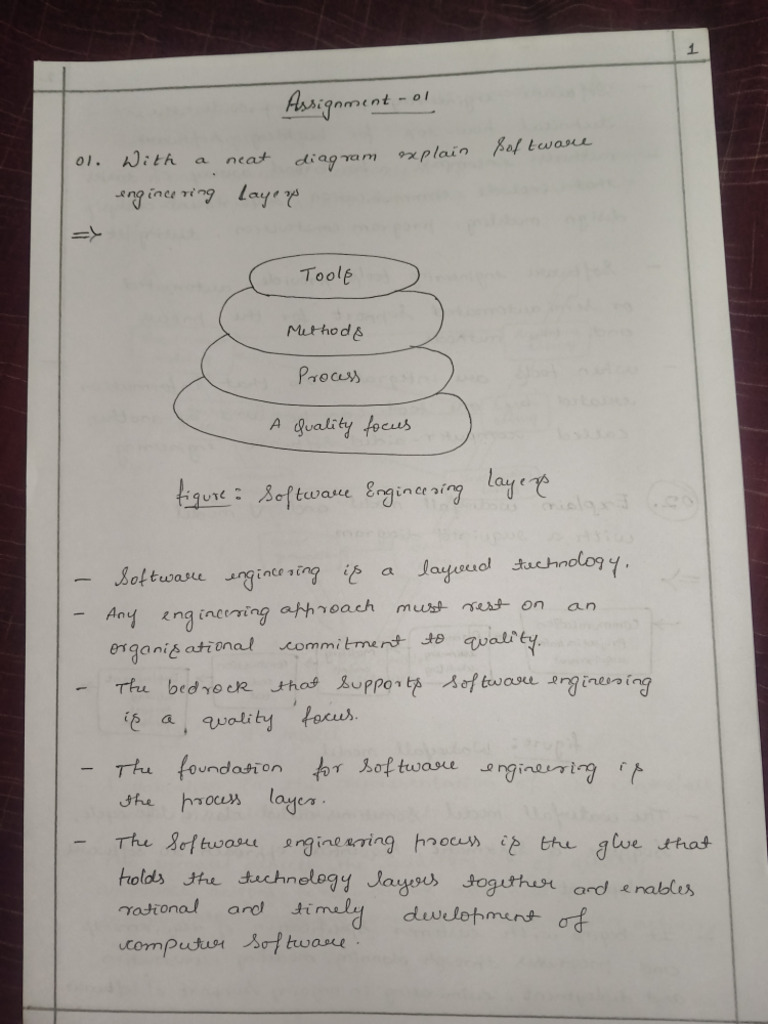 1
Assignment - 01
01. With a neat diagram explain Software
engineering layers
=>
Tools
Methods
Process
A Quality focus
figure: Software Engineering layers
- Software engineering is a layered technology.
- Any engineering approach must rest on an
organisational commitment to quality.
- The bedrock that supports software engineering
is a quality focus.
- The foundation for software engineering is
the process layer.
- The Software engineering process is the glue that
holds the technology layers together and enables
rational and timely development of
computer software.